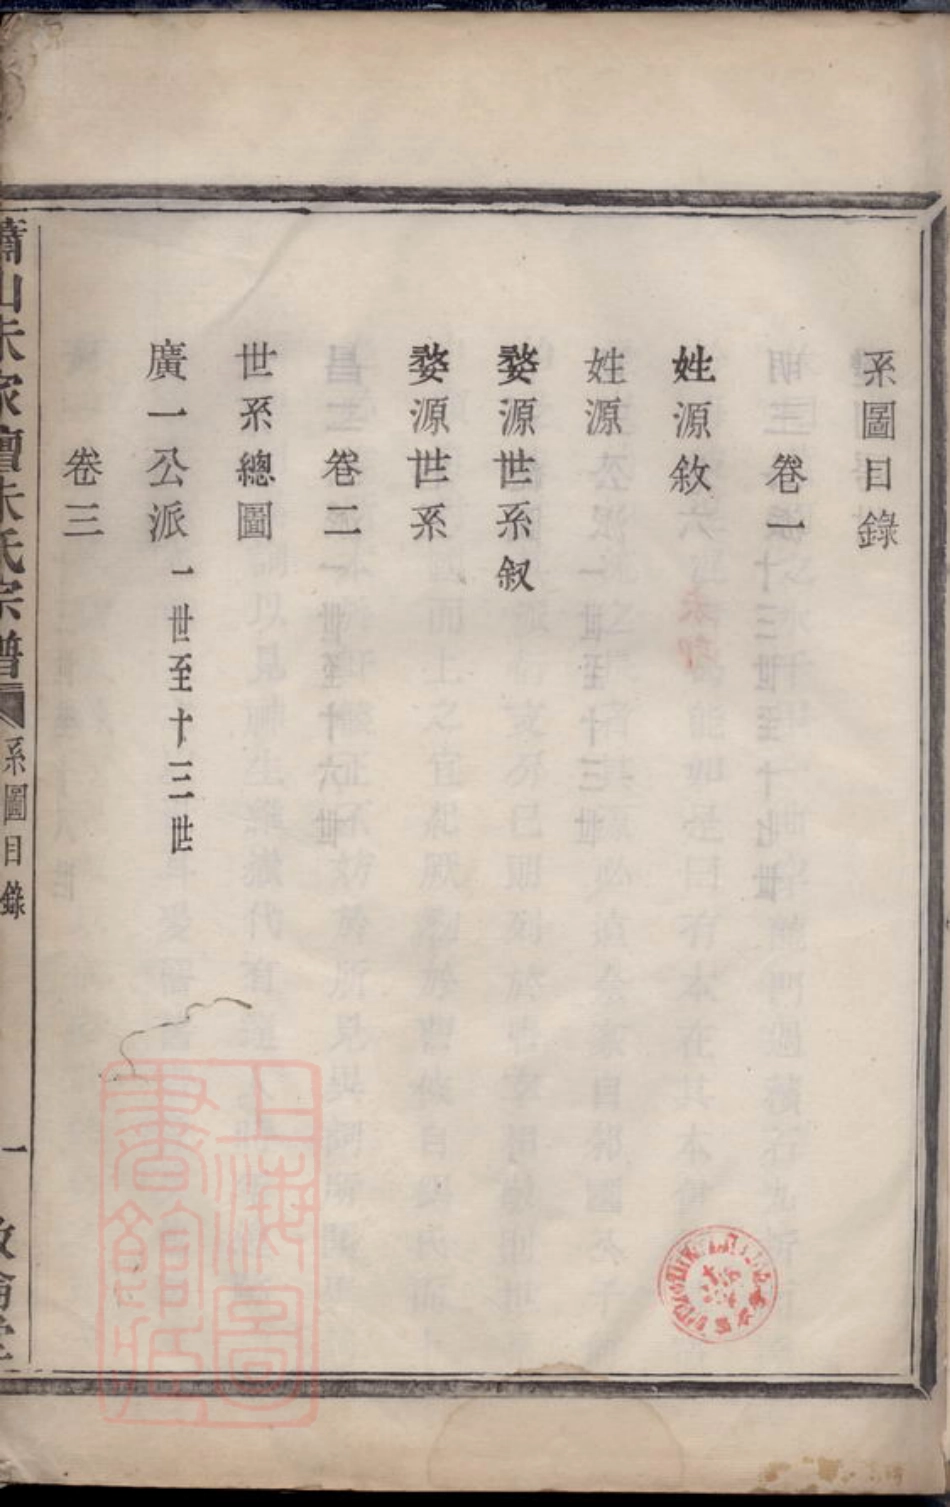 系圖目錄
卷一
姓源敘
姓源
婺源世系叙
婺源世系
卷二
世系總圖
廣一公派 一世至十三世
卷三
蕭山朱家壇朱氏宗譜
系圖目錄
一
上海圖書館藏